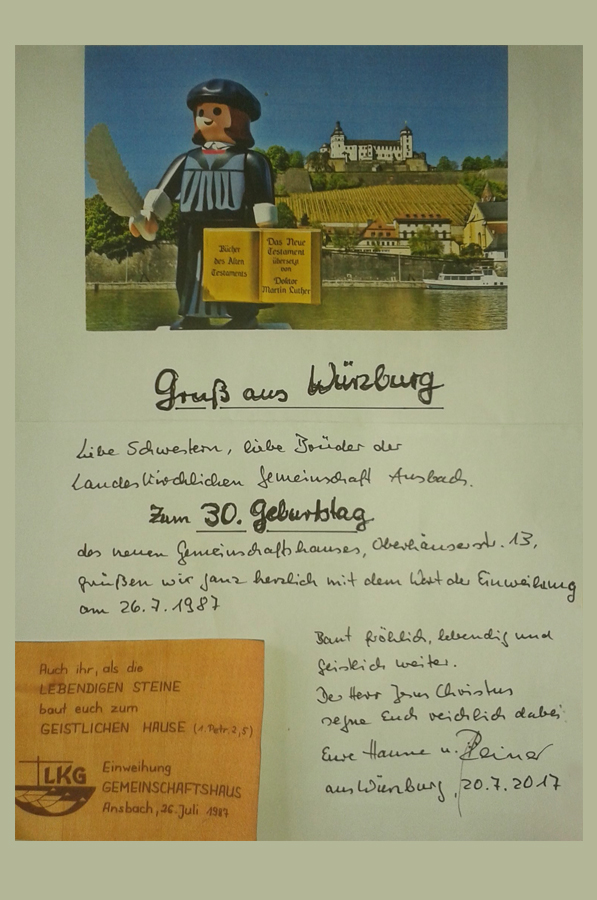 Bücher
des Alten
Testaments
Das Neue
Testament
übersetzt
von
Doktor
Martin Luther
Gruß aus Würzburg
Liebe Schwestern, liebe Brüder der
Landeskirchlichen Gemeinschaft Ansbach.
Zum 30. Geburtstag
des neuen Gemeinschaftshauses, Oberhäuserstr. 13,
grüßen wir ganz herzlich mit dem Wort der Einweihung
am 26.7.1987
Baut fröhlich, lebendig und
geistlich weiter.
Der Herr Jesus Christus
segne Euch reichlich dabei.
Eure Hanne u. Reiner
aus Würzburg, 20.7.2017
Auch ihr, als die
LEBENDIGEN STEINE
baut euch zum
GEISTLICHEN HAUSE (1. Petr. 2,5)
LKG
Einweihung
GEMEINSCHAFTSHAUS
Ansbach, 26. Juli 1987